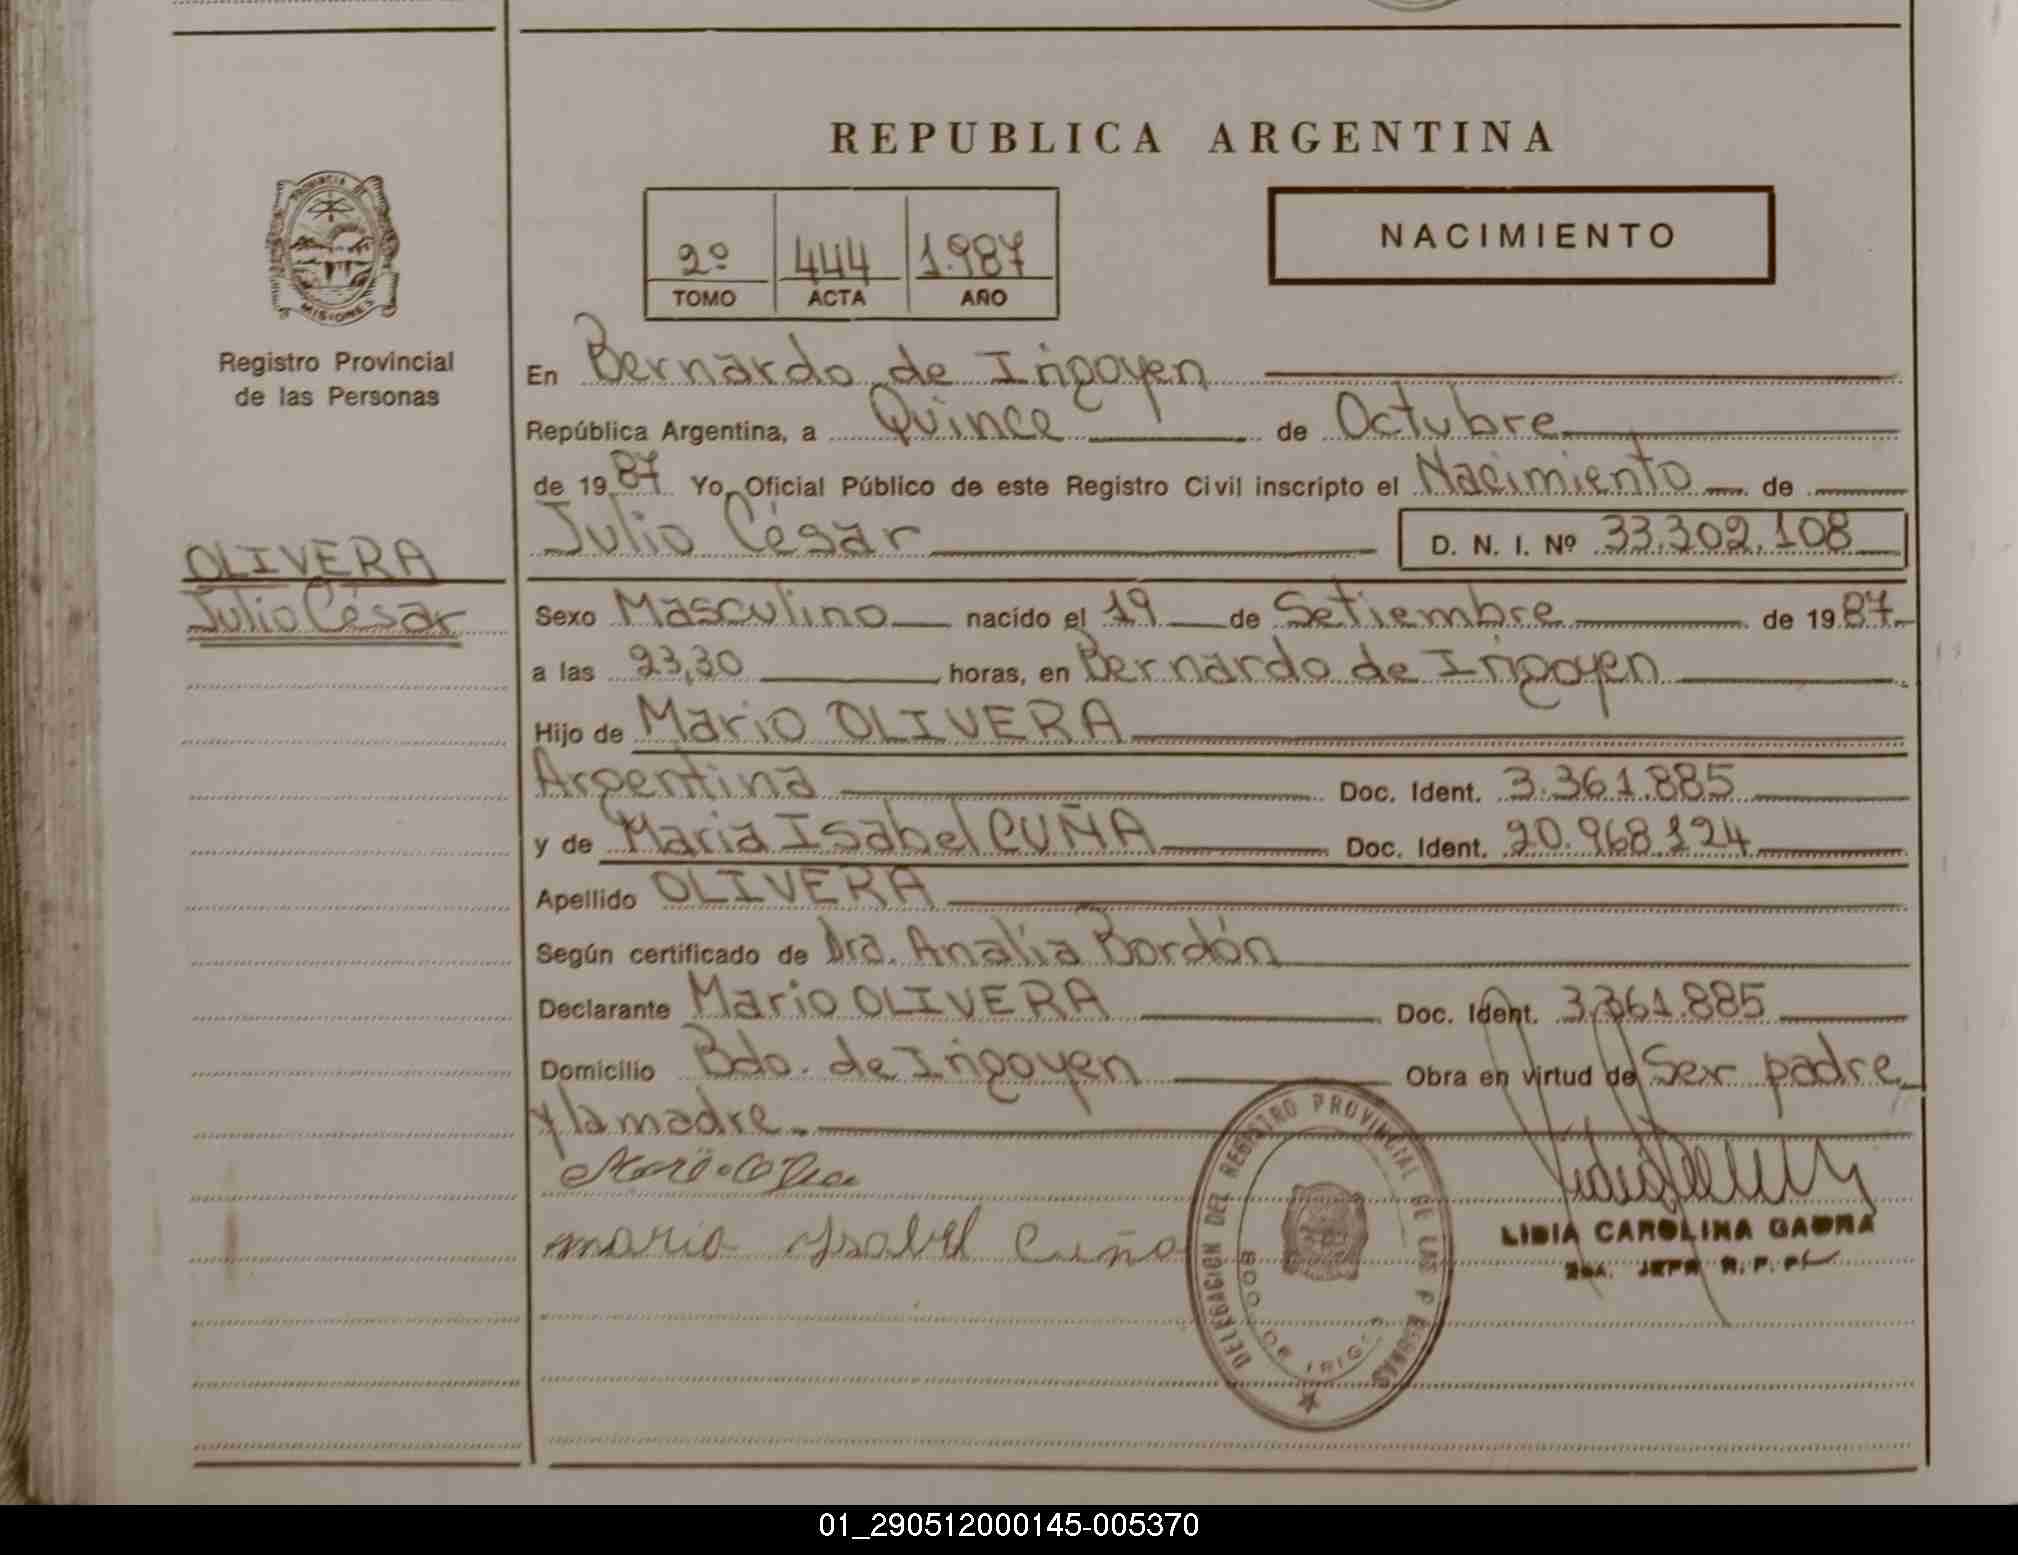 REPUBLICA ARGENTINA
PROVINCIA DE
MISIONES
Registro Provincial
de las Personas
2º 444 1.987
TOMO ACTA AÑO
NACIMIENTO
En Bernardo de Irigoyen
República Argentina, a Quince de Octubre
de 1987 Yo, Oficial Público de este Registro Civil inscripto el Nacimiento de
Julio César D. N. I. Nº 33.302.108
OLIVERA
Julio César
Sexo Masculino nacido el 19 de Setiembre de 1987
a las 23,30 horas, en Bernardo de Irigoyen
Hijo de Mario OLIVERA
Argentina Doc. Ident. 3.361.885
y de Maria Isabel CUÑA Doc. Ident. 20.968.124
Apellido OLIVERA
Según certificado de Dra. Analía Bordón
Declarante Mario OLIVERA Doc. Ident. 3.361.885
Domicilio Bdo. de Irigoyen Obra en virtud de Ser padre
y la madre.
maria ysabel Cuña
DELEGACION DEL REGISTRO PROVINCIAL DE LAS PERSONAS
BDO. DE IRIG
LIDIA CAROLINA
JEFA R. P. P.
01_290512000145-005370